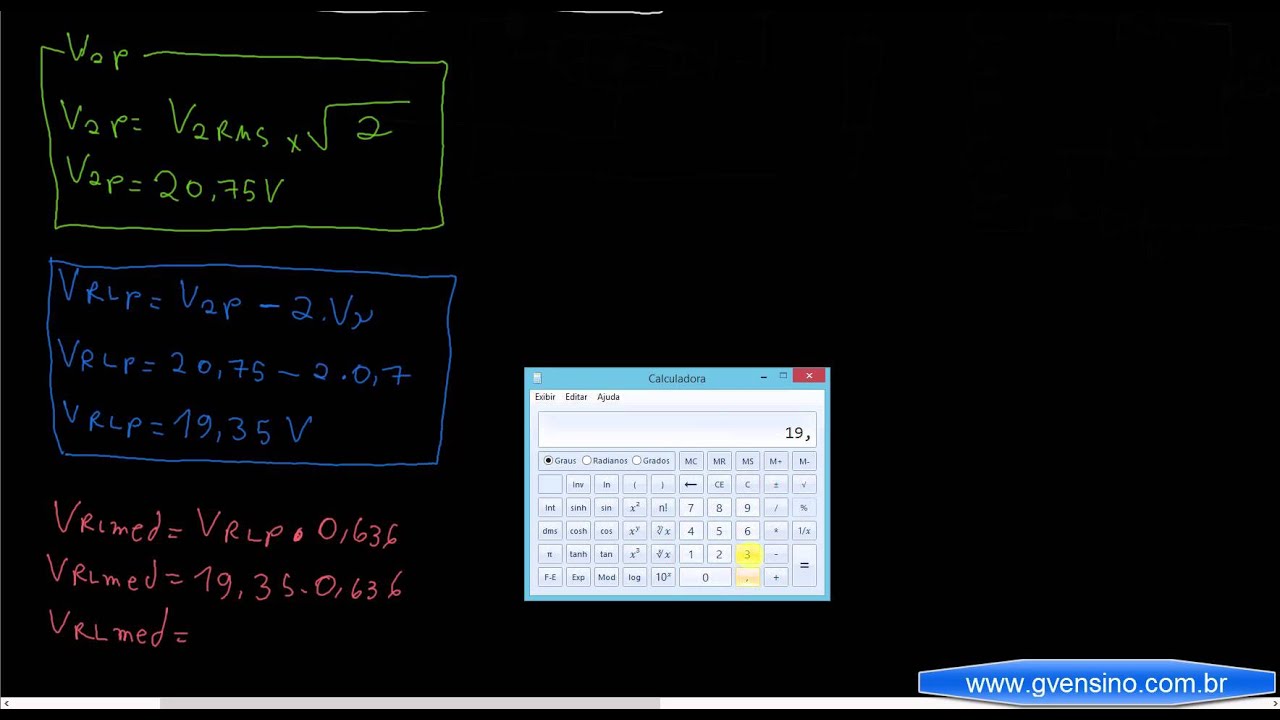 V2P
V2P= V2RMS x √2
V2P= 20,75V
VRLP= V2P - 2.Vγ
VRLP= 20,75 - 2.0,7
VRLP=19,35V
VRLmed= VRLP.0,636
VRLmed=19,35.0,636
VRLmed=
Calculadora
Exibir Editar Ajuda
19,
Graus Radianos Grados MC MR MS M+ M-
Inv ln ( ) ← CE C ± √
Int sinh sin x² n! 7 8 9 / %
dms cosh cos xʸ ʸ√x 4 5 6 * 1/x
π tanh tan x³ ³√x 1 2 3 - =
F-E Exp Mod log 10ˣ 0 , +
www.gvensino.com.br